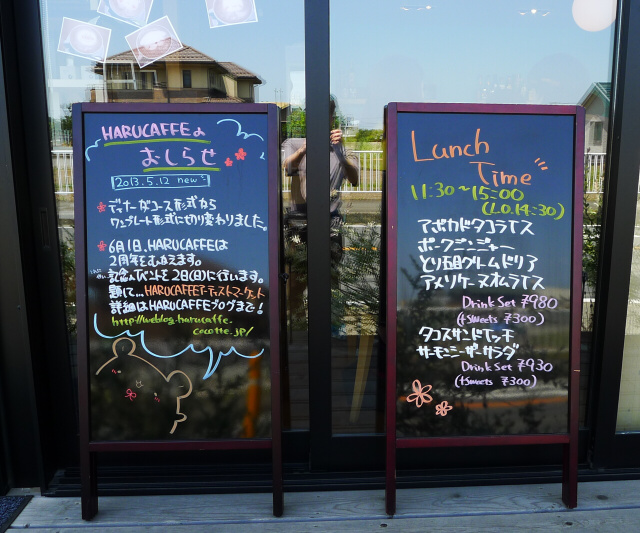 HARUCAFFEの
おしらせ
2013.5.12 new
ディナーがコース形式から
ワンプレート形式に切り変わりました。
6月1日、HARUCAFFEは
2周年をむかえます。
記念イベントを2日(日)に行います。
題して... HARUCAFFEアーティストマーケット
詳細はHARUCAFFEブログまで!
http://weblog.harucaffe.
cocotte.jp/
Lunch
Time
11:30~15:00
(L.O.14:30)
アボカドタコライス
ポークジンジャー
とり五目クリームドリア
アメリケーヌオムライス
Drink Set ¥980
(+Sweets ¥300)
タコスサンドイッチ
サーモンシーザーサラダ
Drink Set ¥930
(+Sweets ¥300)